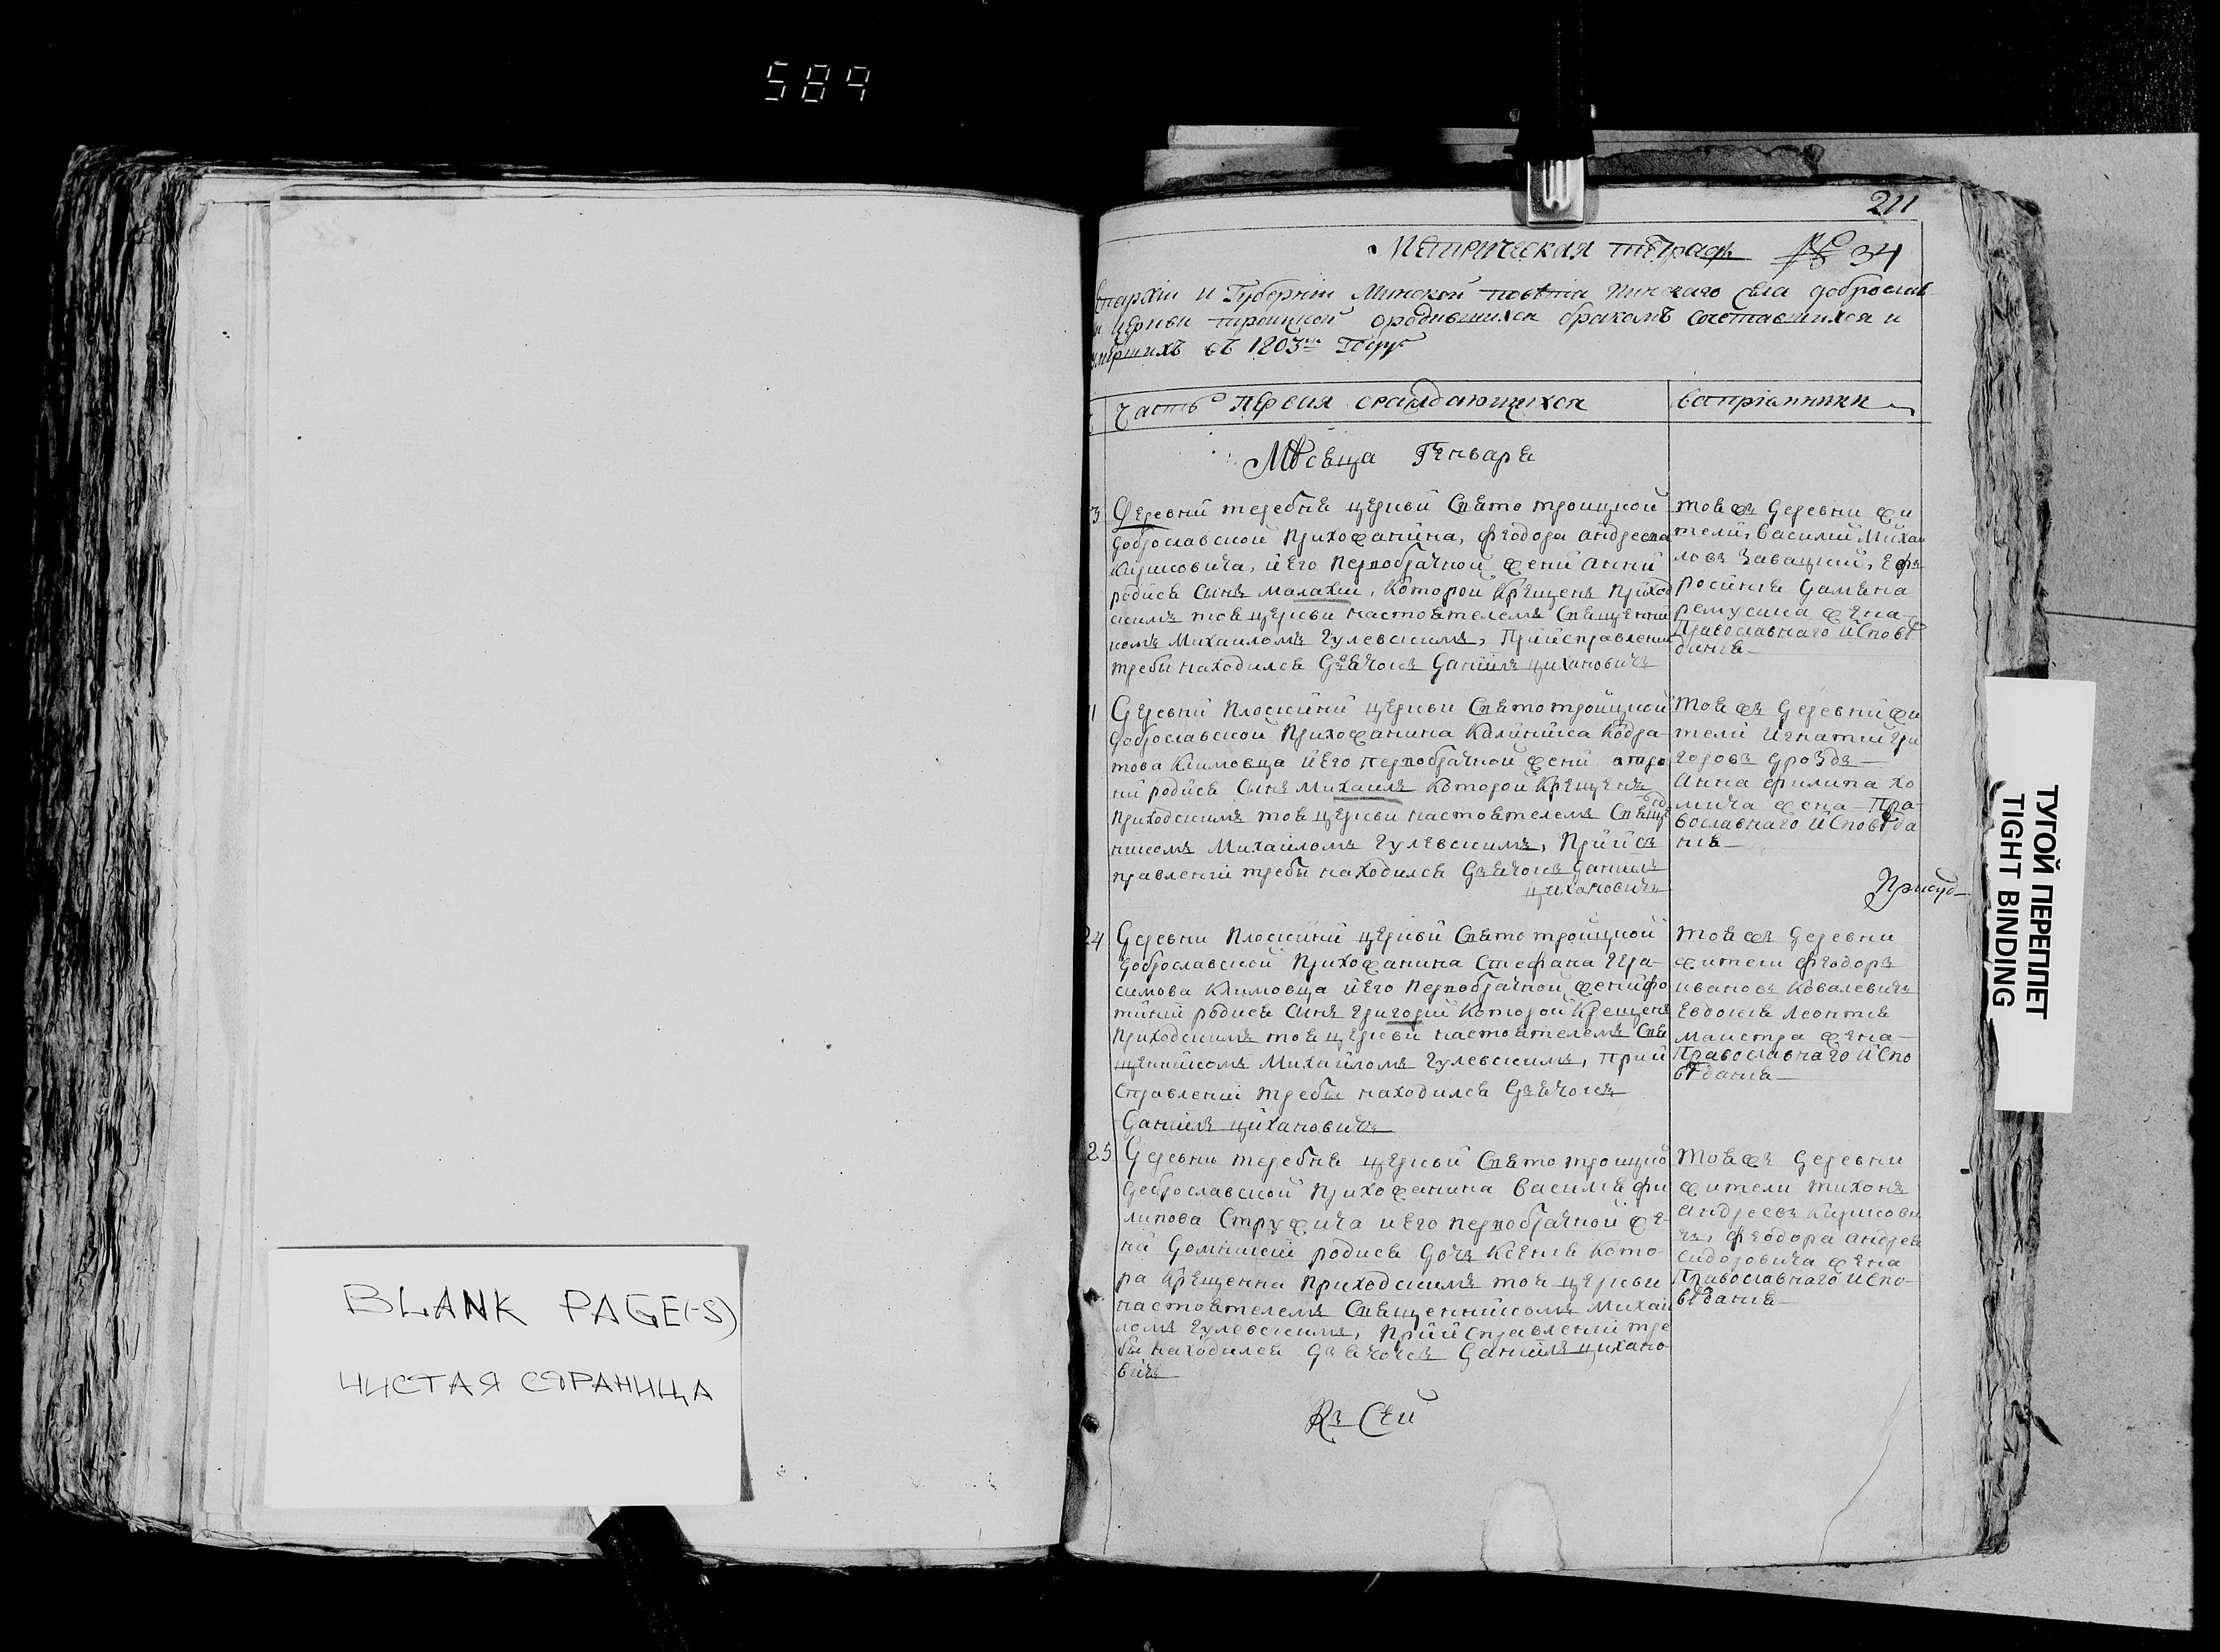 589
211
Метрическая тетрадь № 34
Епархіи и Губерніи Минской повѣта Пинскаго Села доброслав
и Церкви троицкой ородившихся бракомъ сочетавшихся и
умершихъ въ 1803мъ Году
Часть первая ораждающихся
восприемники
Мѣсяца Генваря
3
Деревни теребня церкви Свято троицкой
доброславской прихожанина, Феодора андреева
Кирисовича, и Его первобрачной жени анни
родися Сынъ малахии, Которой Крещенъ приход
скимъ тоя церкви настоятелемъ Священни
комъ Михаиломъ Гулевскимъ, При исправлении
требы находился дьячокъ Даниилъ циханович
тояж деревни жи
тели, василии Михаи
ловъ Завацкий, Ефъ
росиния дамяна
ремусика жена
Православнаго испове
дания
11
Деревни Плоскини церкви Свято троицкой
доброславской Прихожанина Калиника Кодра-
това Климовца и Его первобрачной жени
ни родися Сынъ михаилъ Которой Крещенъ
приходскимъ тоя церкви настоятелемъ Свяще
никомъ Михаиломъ Гулевскимъ, При ис
правлении требы находился дьячокъ Даниилъ
цихановичъ
тояж деревни жи
тели игнатий гри
горовъ дрозд
анна филипа хо
мича жена Пра-
вославнаго исповѣда
ния
Присуд
24
Деревни Плоскини церкви Свято троицкой
доброславской Прихожанина Стефана Гера-
симова Климовца и Его Первобрачной жени фо
тинии родися Синъ Григорий Которой Крещенъ
Приходскимъ тоя церкви настоятелемъ Свя
щенникомъ Михаиломъ Гулевскимъ, при и
справлении требы находился дьячокъ
Даниилъ цихановичъ
тояж деревни
жители феодоръ
ивановъ Ковалевичъ
Евдокия леонтия
маистра жена
Православнаго испо
вѣдания
25
Деревни теребня церкви Свято троицко
доброславской Прихожанина василия фи
липова Стружича и Его первобрачной же-
ни домникии родися дочъ Ксения Кото-
ра Крещенна Приходскимъ тоя церкви
настоятелемъ Священникомъ Михаи
ломъ Гулевскимъ, При исправлении тре
бы находился дьячокъ Даниилъ цихано-
вичъ
тояж деревни
жители тихонъ
андреевъ Кирисови
чъ, феодора андрея
сидоровича жена
Православнаго испо-
вѣдания
Къ Сей
BLANK PAGE(-S)
ЧИСТАЯ СТРАНИЦА
ТУГОЙ ПЕРЕПЛЕТ
TIGHT BINDING